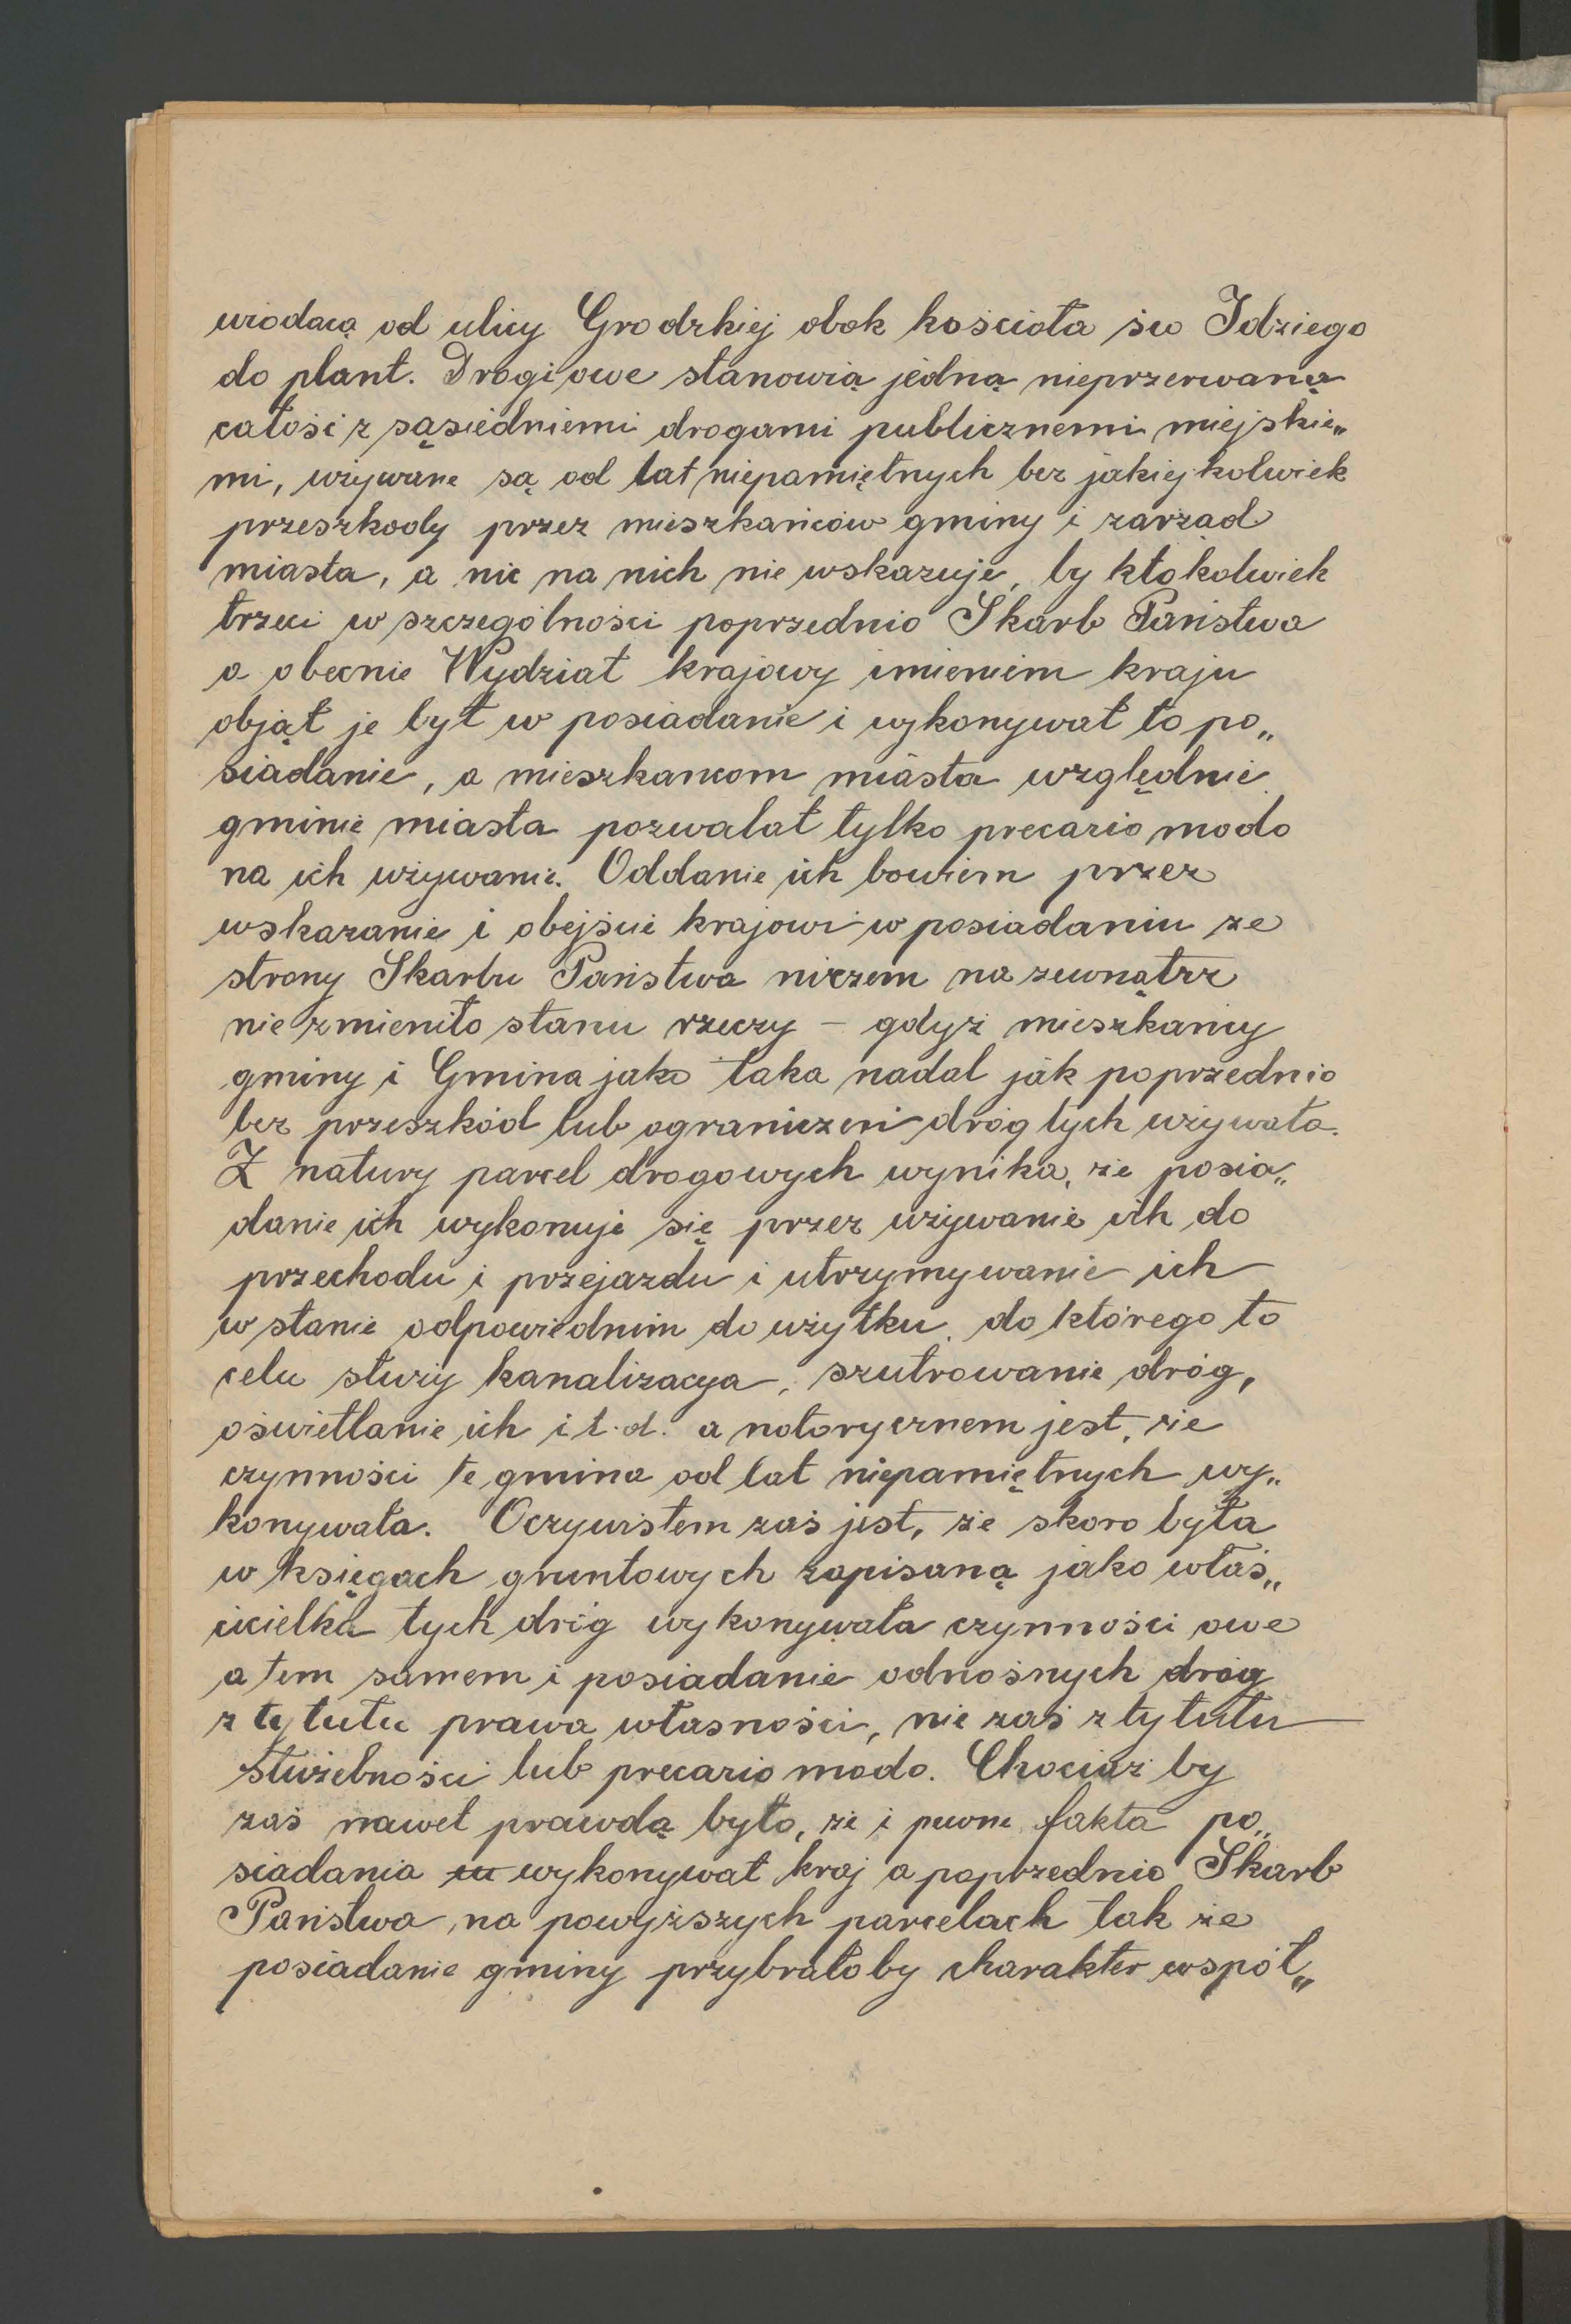 wiodącą od ulicy Grodzkiej obok kościoła św Idziego
do plant. Drogi owe stanowią jedną nieprzerwaną
całość z sąsiedniemi drogami publicznemi miejskie„
mi, używane są od lat niepamiętnych bez jakiejkolwiek
przeszkody przez mieszkańców gminy i zarząd
miasta, a nic na nich nie wskazuje, by ktokolwiek
trzeci w szczególności poprzednio Skarb Państwa
a obecnie Wydział krajowy imieniem kraju
objął je był w posiadanie i wykonywał to po„
siadanie, a mieszkancom miasta względnie
gminie miasta pozwalał tylko precario modo
na ich używanie. Oddanie ich bowiem przez
wskazanie i obejście krajowi w posiadaniu ze
strony Skarbu Państwa niczem na zewnątrz
nie zmieniło stanu rzeczy – gdyż mieszkańcy
gminy i Gmina jako taka nadal jak poprzednio
bez przeszkód lub ograniczeń dróg tych używała.
Z natury parcel drogowych wynika, że posia„
danie ich wykonuje się przez używanie ich do
przechodu i przejazdu i utrzymywanie ich
w stanie odpowiednim do użytku, do którego to
celu służy kanalizacya, szutrowanie dróg,
oświetlanie ich i t.d. a notorycznem jest, że
czynności te gmina od lat niepamiętnych wy„
konywała. Oczywistem zaś jest, że skoro była
w księgach gruntowych zapisaną jako właś„
cicielka tych dróg wykonywała czynności owe
a tem samem i posiadanie odnośnych dróg
z tytułu prawa własności, nie zaś z tytułu
służebności lub precario modo. Chociaż by
zaś nawet prawdą było, że i pewne fakta po„
siadania w wykonywał kraj a poprzednio Skarb
Państwa na powyższych parcelach tak że
posiadanie gminy przybrałoby charakter współ„